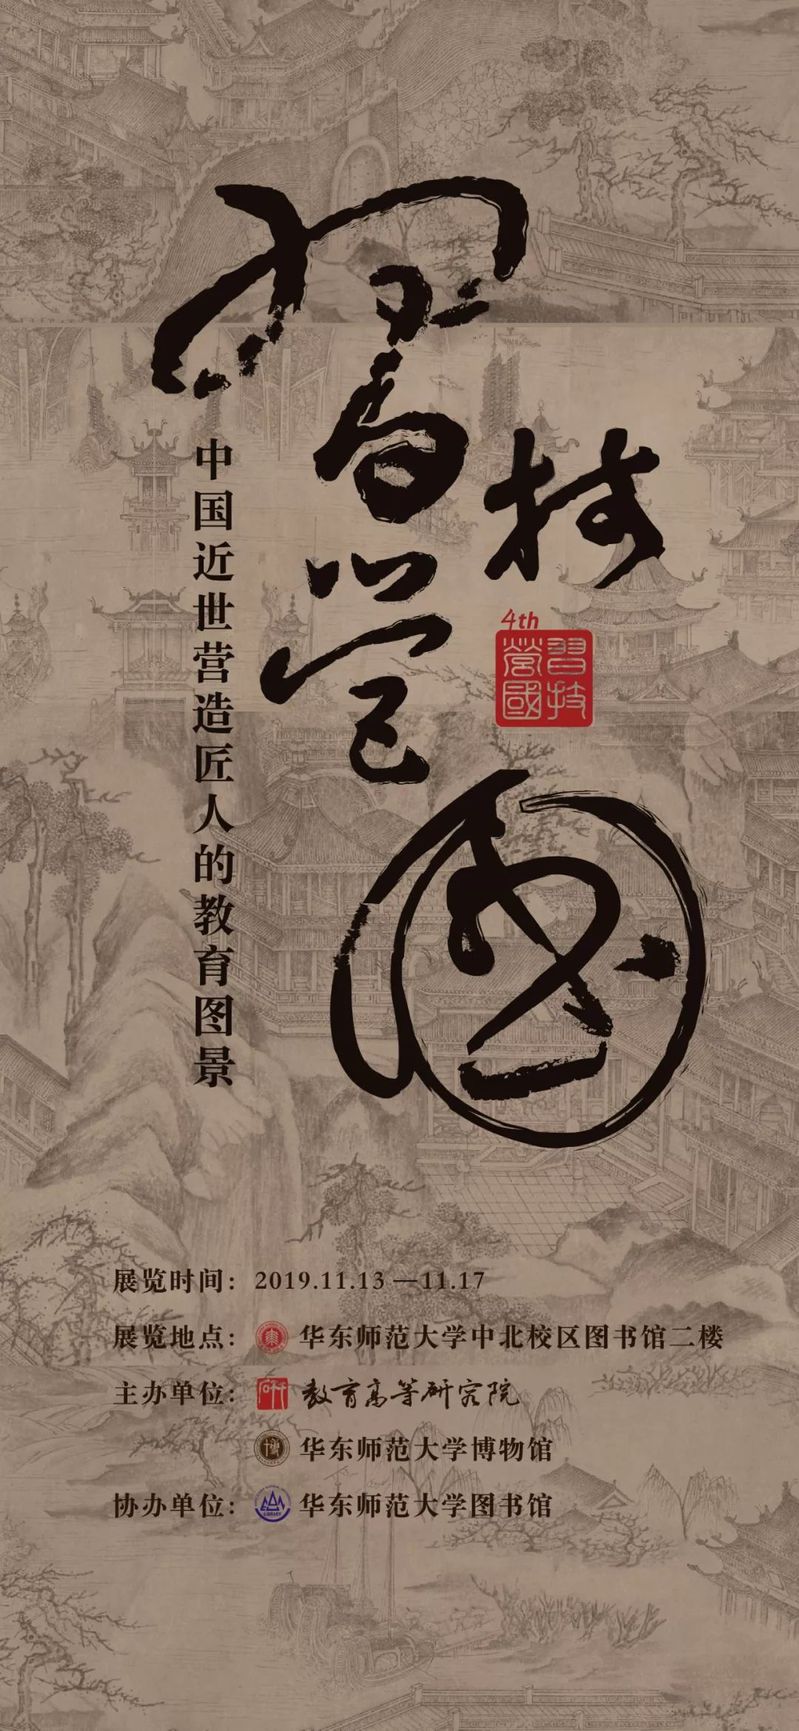 習技營國
中国近世营造匠人的教育图景
4th
習技
營國
展览时间：2019.11.13—11.17
展览地点：华东师范大学中北校区图书馆二楼
主办单位：教育高等研究院
华东师范大学博物馆
协办单位：华东师范大学图书馆
LIBRARY